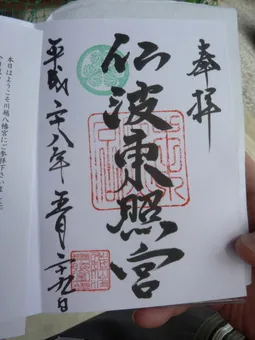 奉拝
仙波東照宮
平成二十八年五月二十九日
本日はようこそ川越八幡宮にご参拝下さいました